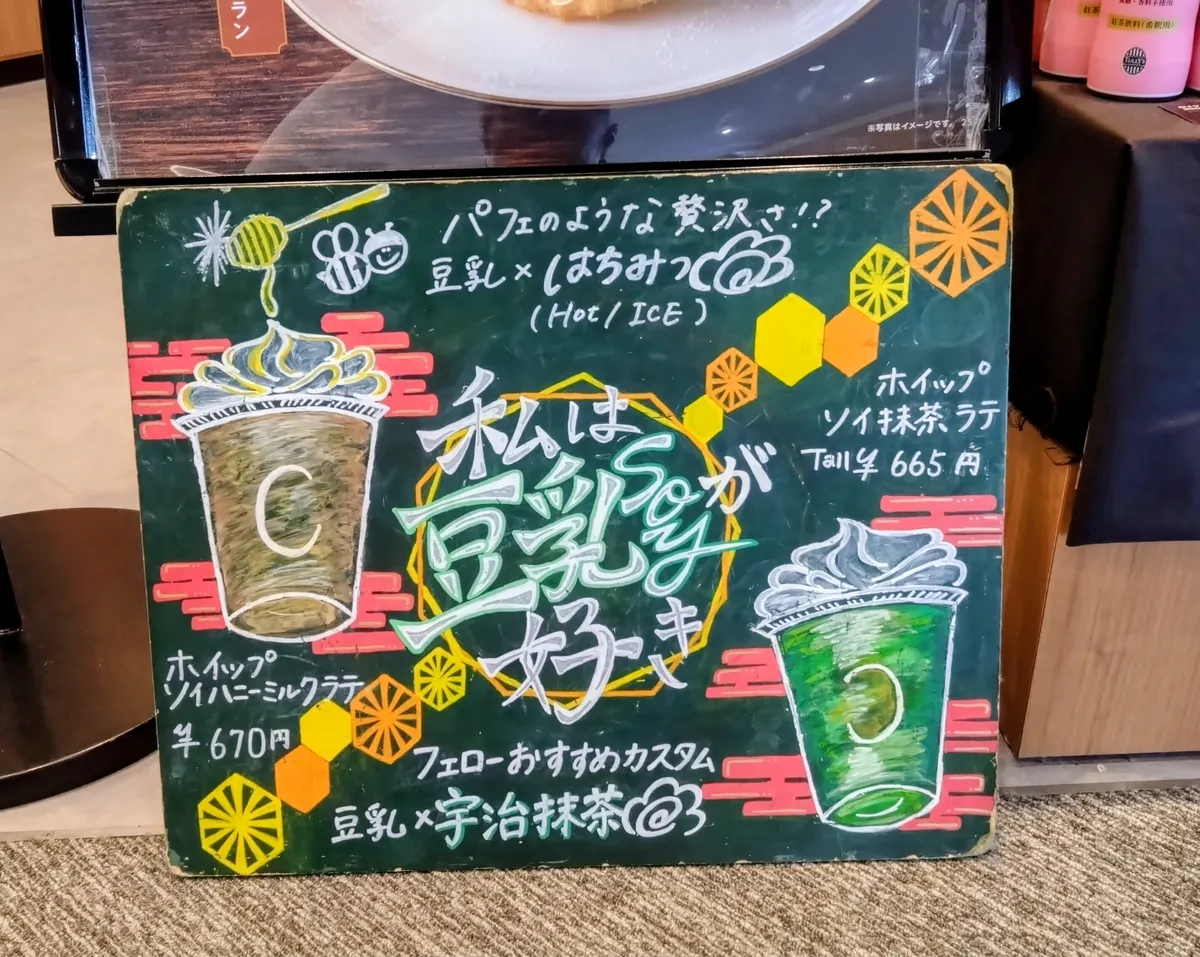 ラン
※写真はイメージです。
紅茶飲料(希釈用)
TULLY'S
パフェのような贅沢さ!?
豆乳×はちみつ
(Hot/ICE)
ホイップ
ソイ抹茶ラテ
Tall ¥665円
私は
豆乳Soyが
好き
C
C
ホイップ
ソイハニーミルクラテ
¥670円
フェローおすすめカスタム
豆乳×宇治抹茶